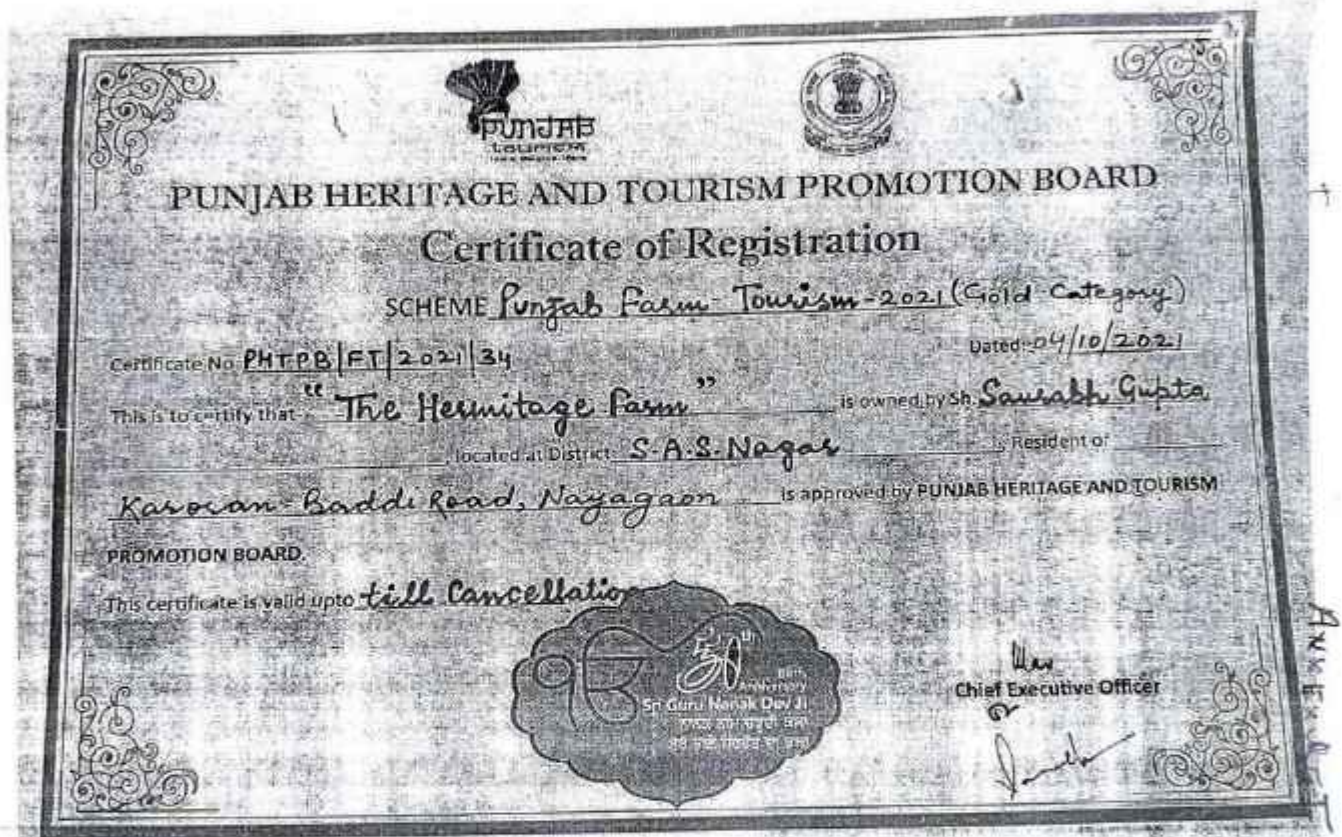 PUNJAB
TOURISM
PUNJAB HERITAGE AND TOURISM PROMOTION BOARD
Certificate of Registration
SCHEME Punjab Farm-Tourism-2021 (Gold Category)
Certificate No PHTPB/FT/2021/34 Dated: 04/10/2021
This is to certify that "The Hermitage Farm" is owned by Sh. Saurabh Gupta
located at District S-A-S-Nagar, Resident of
Karoran-Baddi Road, Nayagaon is approved by PUNJAB HERITAGE AND TOURISM
PROMOTION BOARD.
This certificate is valid upto till Cancellation
ੴ
550th
Birth
Anniversary
Sri Guru Nanak Dev Ji
Chief Executive Officer